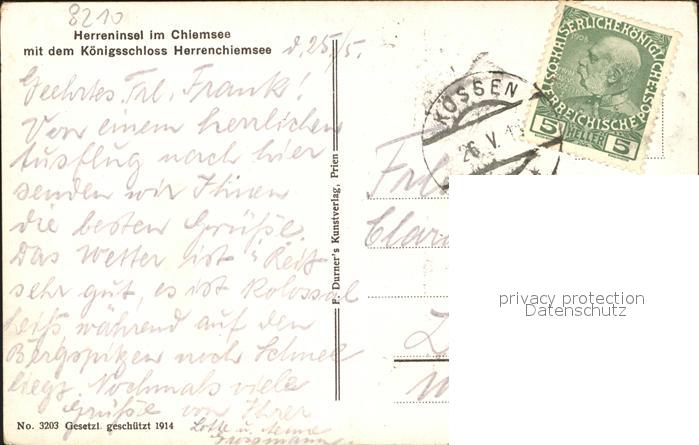 8210
Herreninsel im Chiemsee
mit dem Königsschloss Herrenchiemsee
d. 25/5.
Geehrtes Frl. Frank!
Von einem herrlichen
Ausflug nach hier
senden wir Ihnen
die besten Grüße.
Das Wetter ist
sehr gut, es ist kolossal
heiß während auf den
Bergspitzen noch Schnee
liegt. Nochmals viele
Grüße von Ihrer
Lotte u.
No. 3203 Gesetzl. geschützt 1914
F. Durner's Kunstverlag, Prien
KÖSSEN
26. V.
KAISERLICHE KÖNIGLICHE
ÖSTERREICHISCHE POST
1908
5 HELLER 5
Frl
privacy protection
Datenschutz